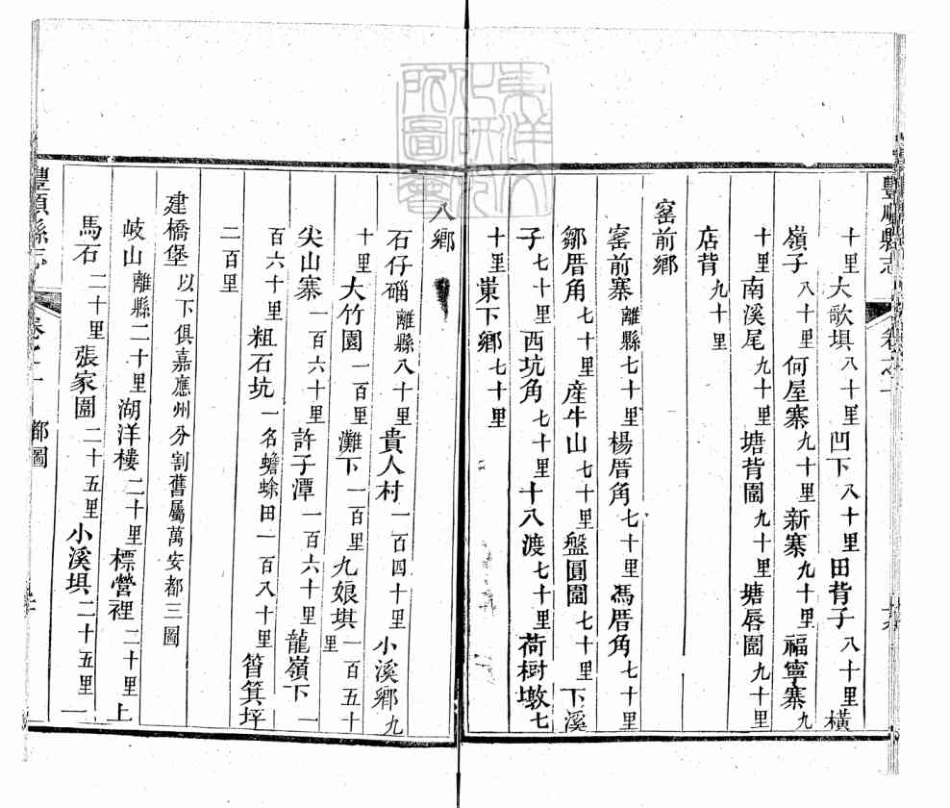 豐順縣志
十里大歌埧八十里凹下八十里田背子八十里橫
嶺子八十里何屋寨九十里新寨九十里福寧寨九
十里南溪尾九十里塘背圍九十里塘唇圍九十里
店背九十里
窰前鄉
窰前寨離縣七十里楊厝角七十里馮厝角七十里
鄒厝角七十里産牛山七十里盤圓圍七十里下溪
子七十里西坑角七十里十八渡七十里荷樹墩七
十里菄下鄉七十里
八鄉
石仔𥕢離縣八十里貴人村一百四十里小溪鄉九
十里大竹園一百里灘下一百里九娘埧一百五十里
尖山寨一百六十里許子潭一百六十里龍嶺下一
百六十里粗石坑一名蟾蜍田一百八十里筲箕坪
二百里
建橋堡以下俱嘉應州分割舊屬萬安都三圖
岐山離縣二十里湖洋樓二十里標營裡二十里上
馬石二十里張家圍二十五里小溪埧二十五里一
豐順縣志
都圖